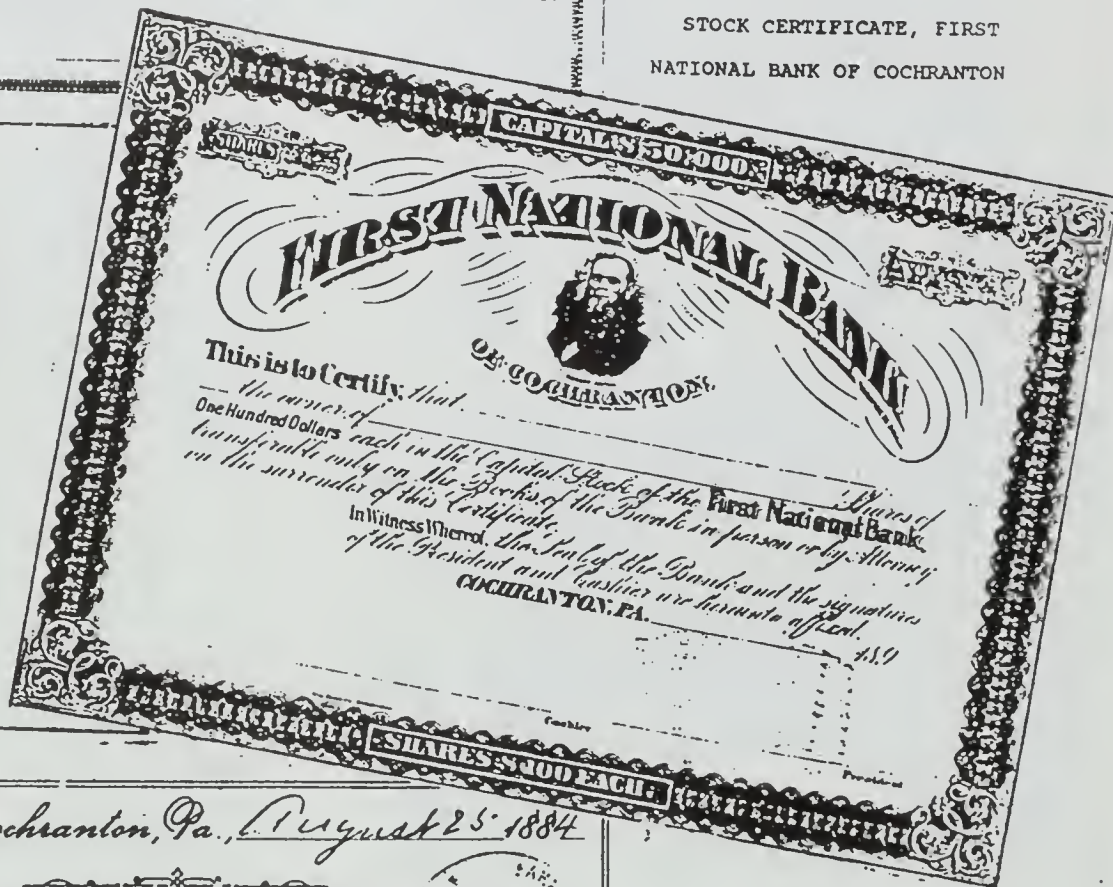 STOCK CERTIFICATE, FIRST
NATIONAL BANK OF COCHRANTON
CAPITAL $50,000
SHARES
FIRST NATIONAL BANK
OF COCHRANTON,
This is to Certify, that
the owner of Shares of
One Hundred Dollars each in the Capital Stock of the First National Bank,
transferable only on the Books of the Bank in person or by Attorney
on the surrender of this Certificate.
In Witness Whereof, the Seal of the Bank and the signatures
of the President and Cashier are hereunto affixed.
COCHRANTON, PA. 189
Cashier
President
SHARES $100 EACH.
ochranton, Pa., August 25 1884